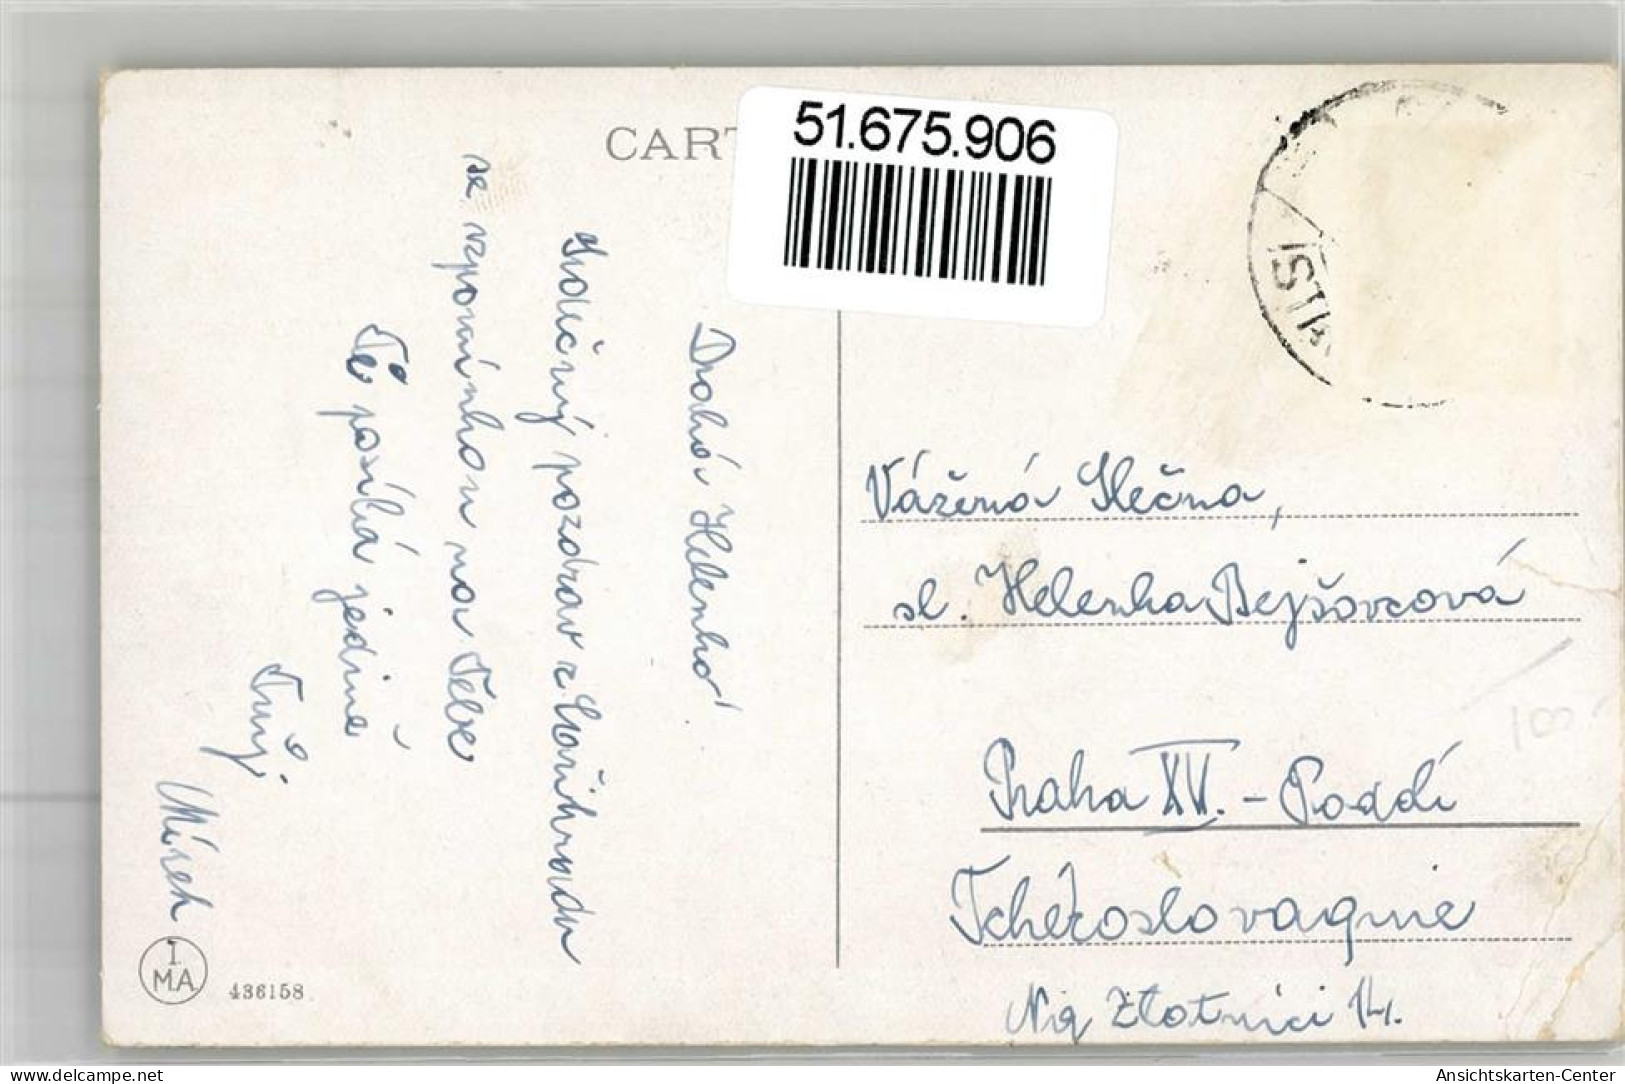 CART
51.675.906
Drahá Helenko!
Srdečný pozdrav z Cařihradu
se vzpomínkou na Tebe
Tě posílá jedině
Tvůj
Mirek
I.
M.A.
436158
Vážená Slečna,
sl. Helenka Bejšovcová
Praha XV. - Podolí
Tchécoslovaquie
Na Zlatnici 14.
Ansichtskarten-Center
www.delcampe.net